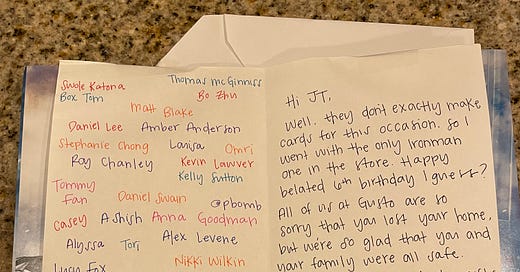 Thomas McGinniss
Swole Katona
Box Tom
Bo Zhu
Matt Blake
Daniel Lee Amber Anderson
Stephanie Chong Larisa Omri
Roy Chanley Kevin Lawver
Kelly Sutton
Tommy
Fan
Daniel Swain @pbomb
Casey Ashish Anna Goodman
Alyssa Tori Alex Levene
Nikki Wilkin
Lucy Fox
Hi JT,
Well. they don't exactly make
cards for this occasion. So I
went with the only Ironman
one in the store. Happy
belated 6th birthday I guess?
All of us at Gusto are so
sorry that you lost your home,
but we're so glad that you and
your family were all safe.